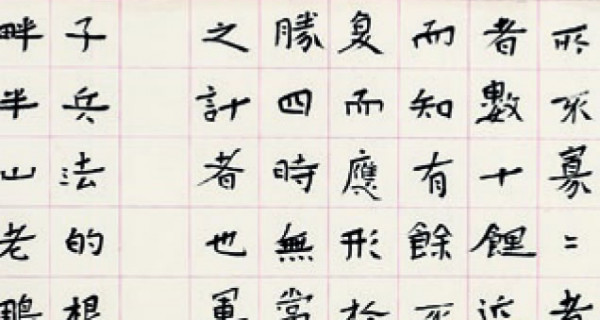 所不寡二者
者數十近
而知有餘不
复而應形於
勝四時無常
之計者也軍
子兵法的根
畔半山老